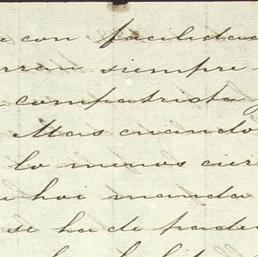 e con facilidad
rran siempre
compatriota
Mas cuando
lo menos cier
hoi manda
se ha de pade